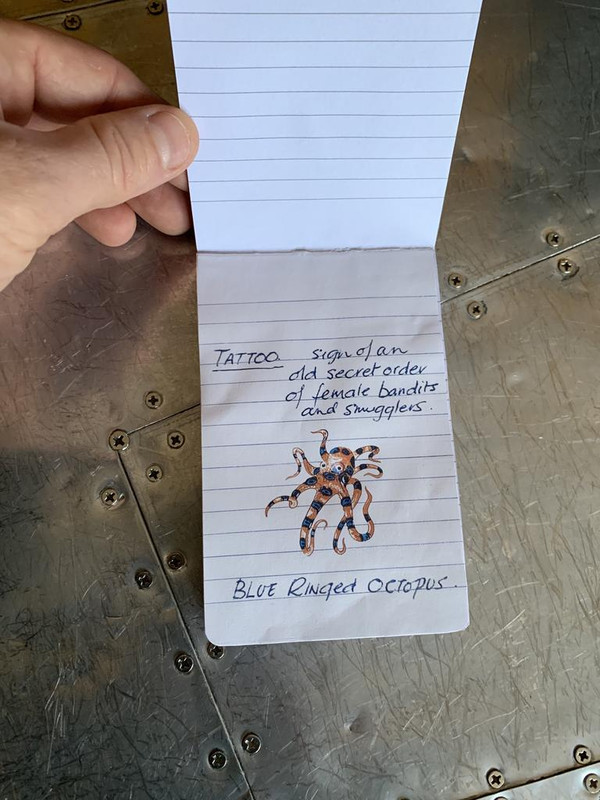 TATTOO sign of an
old secret order
of female bandits
and smugglers.
BLUE RINged OCTOPUS.